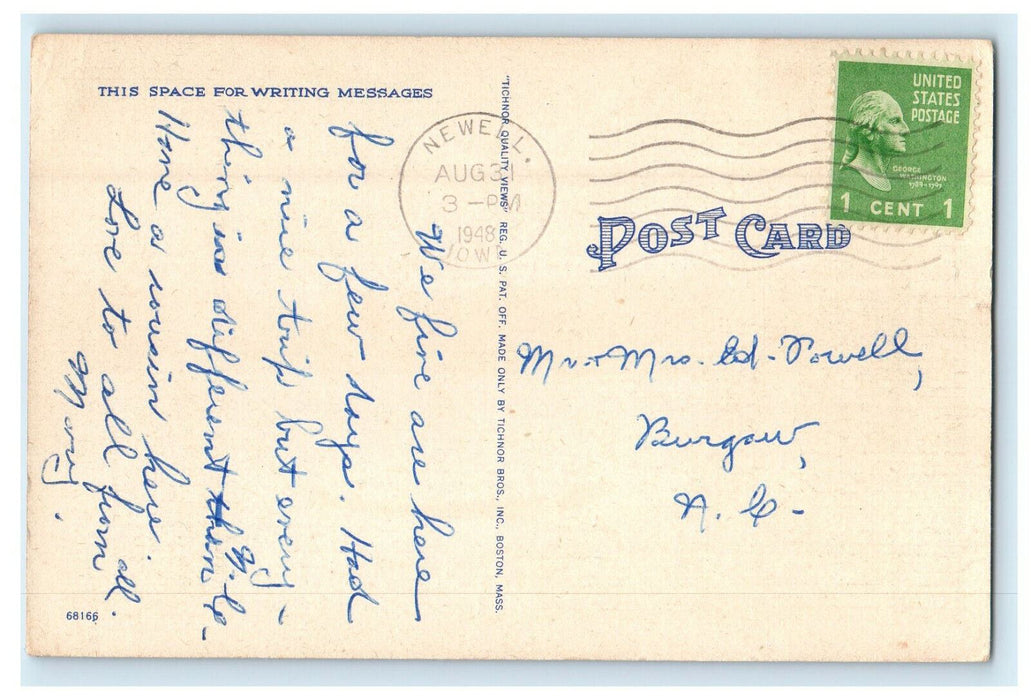 THIS SPACE FOR WRITING MESSAGES
We five are here
for a few days. Had
a nice trip but every-
thing is different than N. C.
Have a cousin here.
Love to all from all.
Mary.
68166
"TICHNOR QUALITY VIEWS" REG. U. S. PAT. OFF. MADE ONLY BY TICHNOR BROS., INC., BOSTON, MASS.
NEWELL.
AUG 31
3 - PM
1948
IOWA
UNITED
STATES
POSTAGE
GEORGE
WASHINGTON
1789-1797
1 CENT 1
POST CARD
Mr. + Mrs. Ed. Powell,
Burgaw,
N. C.